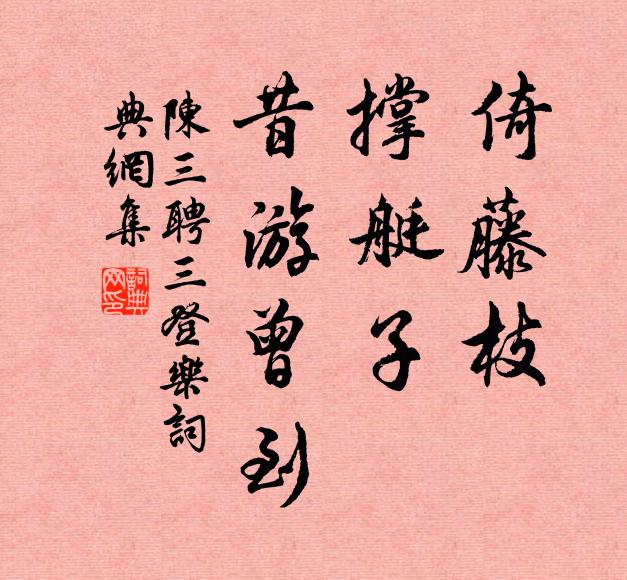 倚藤枝
撑艇子
昔游曾到
陳三聘三登樂詞
典網集
詞典網印